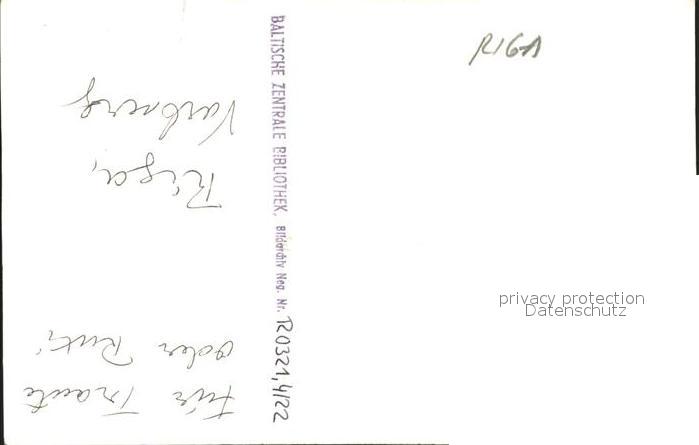 RIGA
BALTISCHE ZENTRALE BIBLIOTHEK, Bildarchiv Neg. Nr. R0321,4/22
Riga,
Für Traute
oder Ruti
privacy protection
Datenschutz